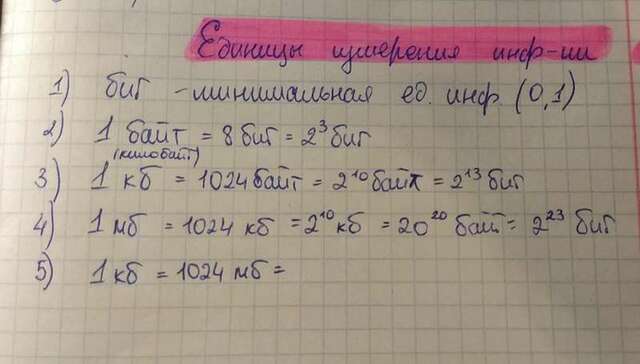 Единицы измерения инф-ии
1) бит - минимальная ед. инф. (0,1)
2) 1 байт = 8 бит = 2³ бит
(килобайт)
3) 1 кб = 1024 байт = 2¹⁰ байт = 2¹³ бит
4) 1 мб = 1024 кб = 2¹⁰ кб = 20²⁰ байт = 2²³ бит
5) 1 кб = 1024 мб =